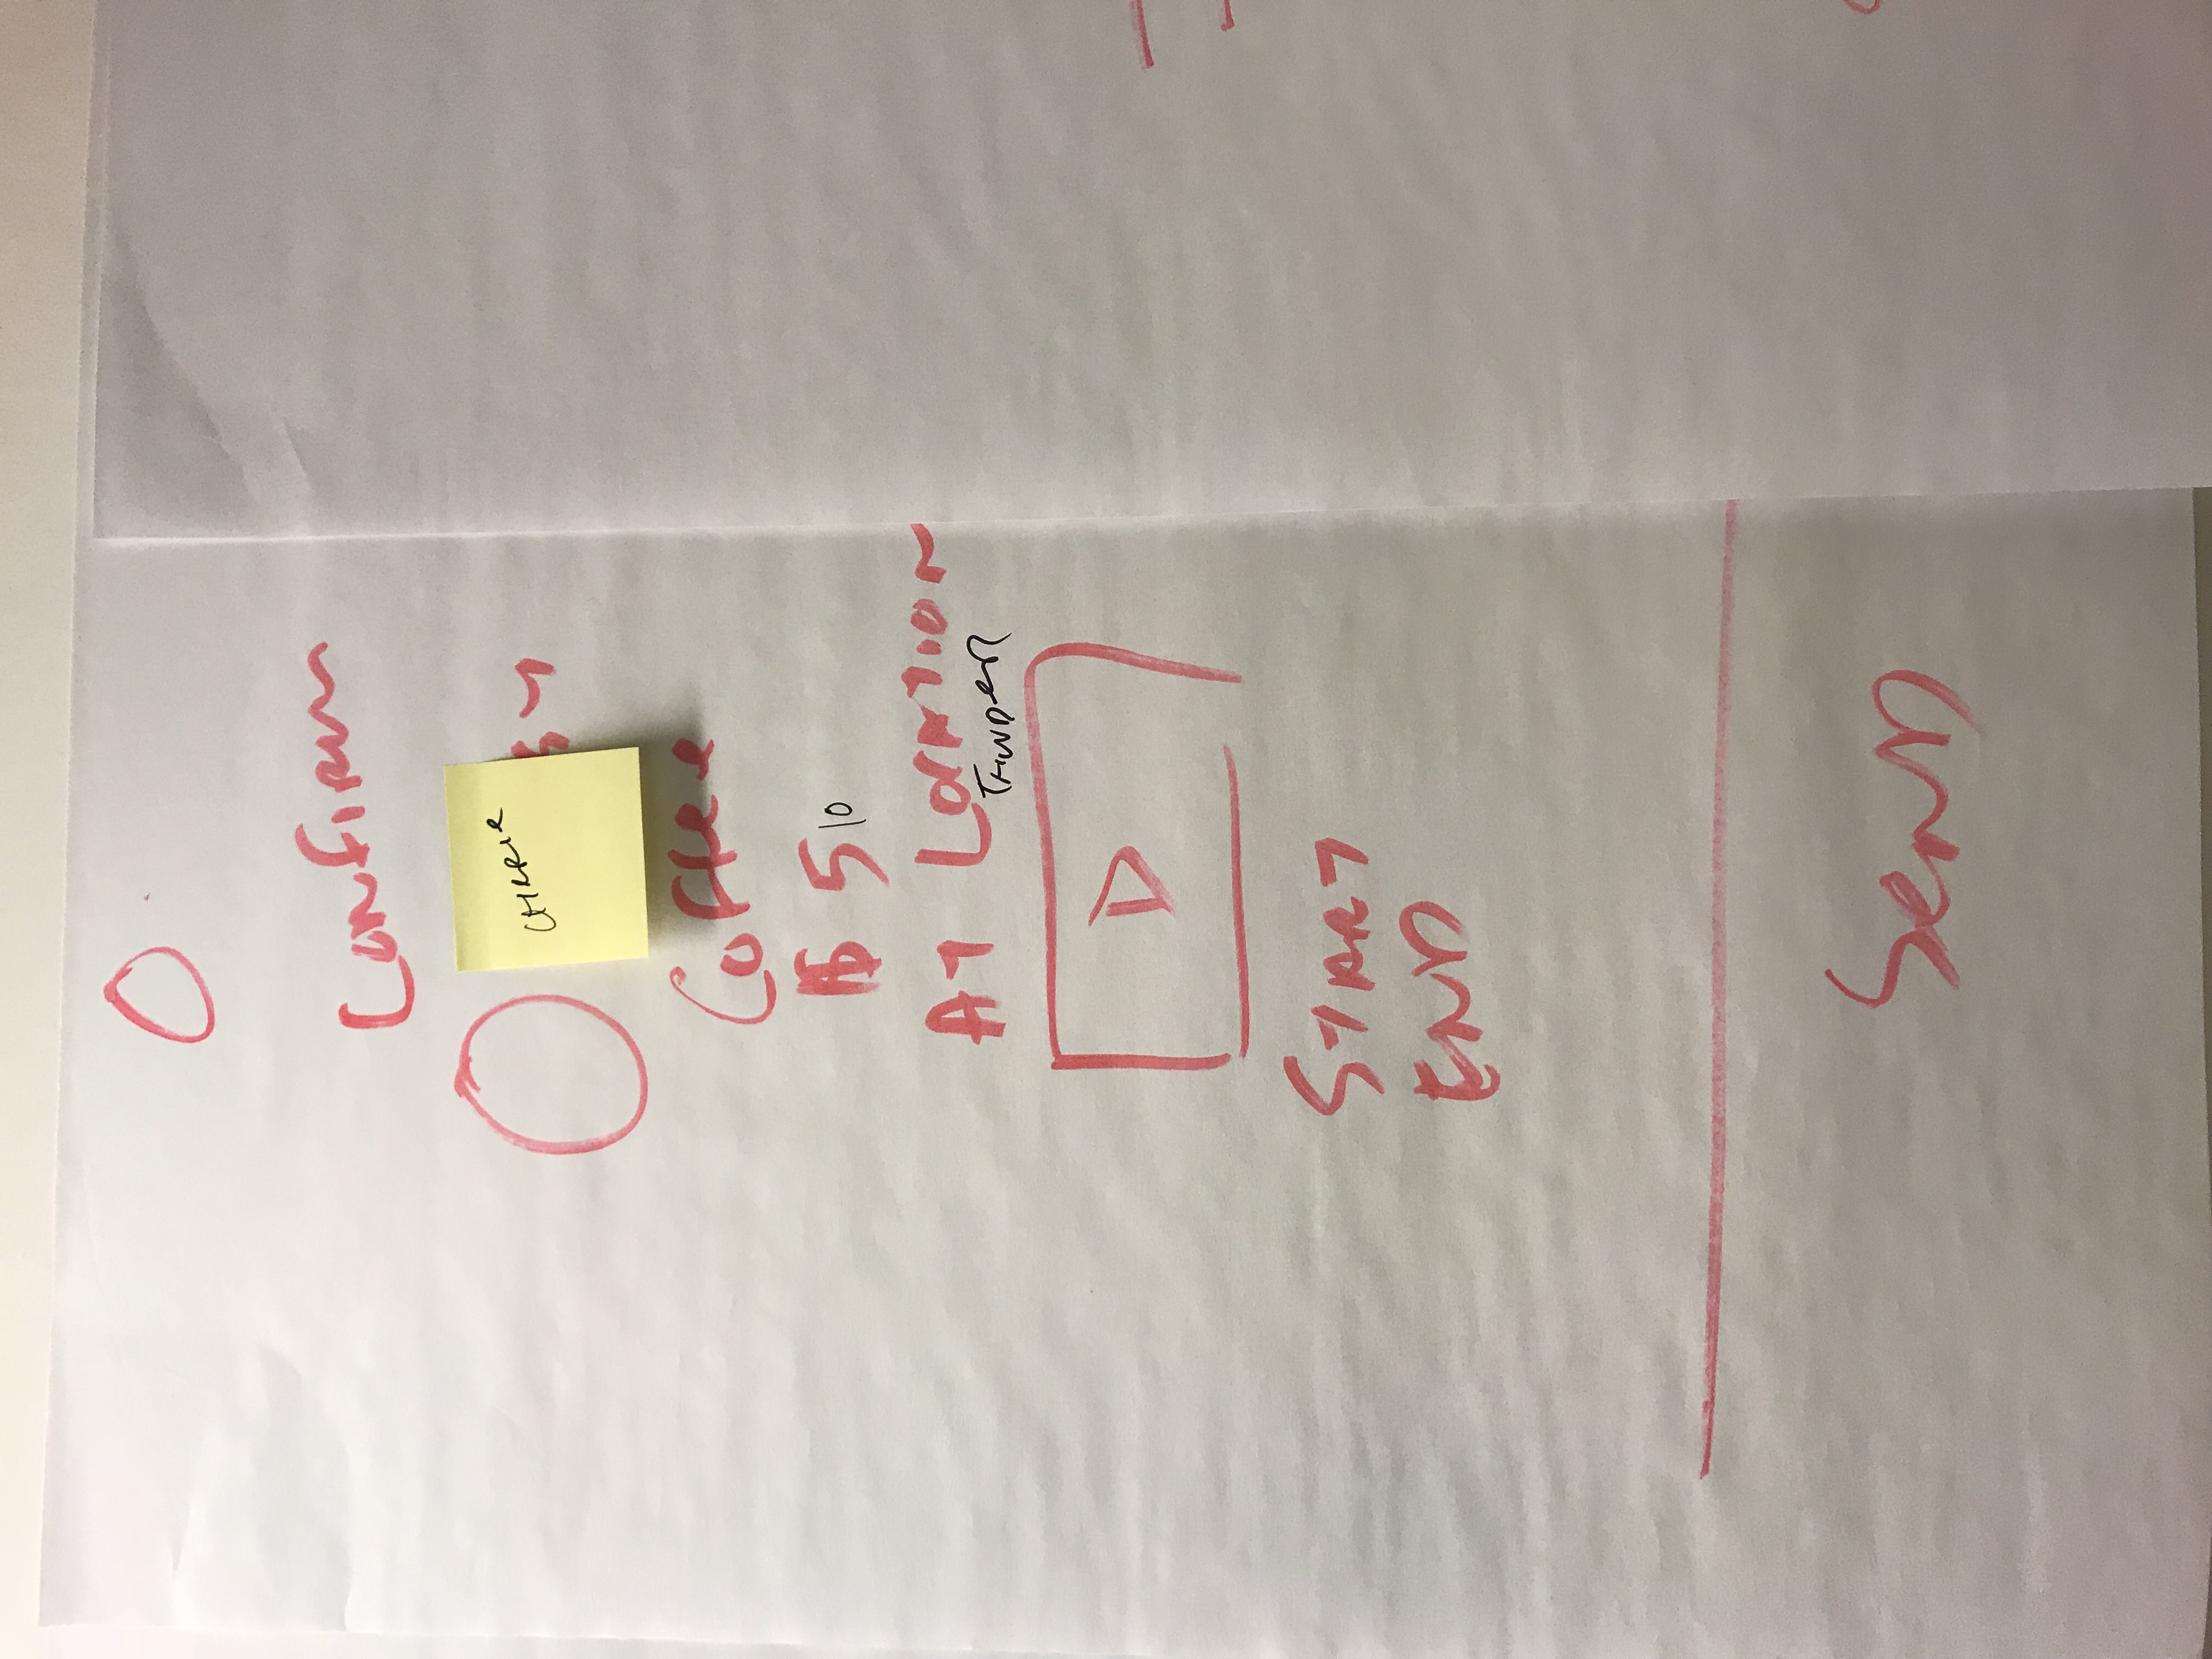 Confirm
sy
Coffee
$ 5 10
AT LOCATION
THUNDER
START
END
SenD